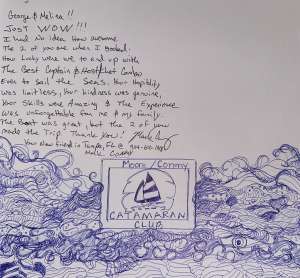 George & Melina !!
JUST WOW!!!
I had No idea How awesome
The 2 of you are when I booked.
How Lucky were we to end up with
The Best Captain & Host/chef Combo
Ever to sail the Seas. Your Hospitality
was limitless, Your kindness was genuine,
Your Skills were Amazing & The Experience
was unforgettable for me & my family.
The Boat was great, but the 2 of you
made the Trip. Thank You!
Your new friend in Tampa, FL @
Mark
Moore / Conmy
CATAMARAN
CLUB